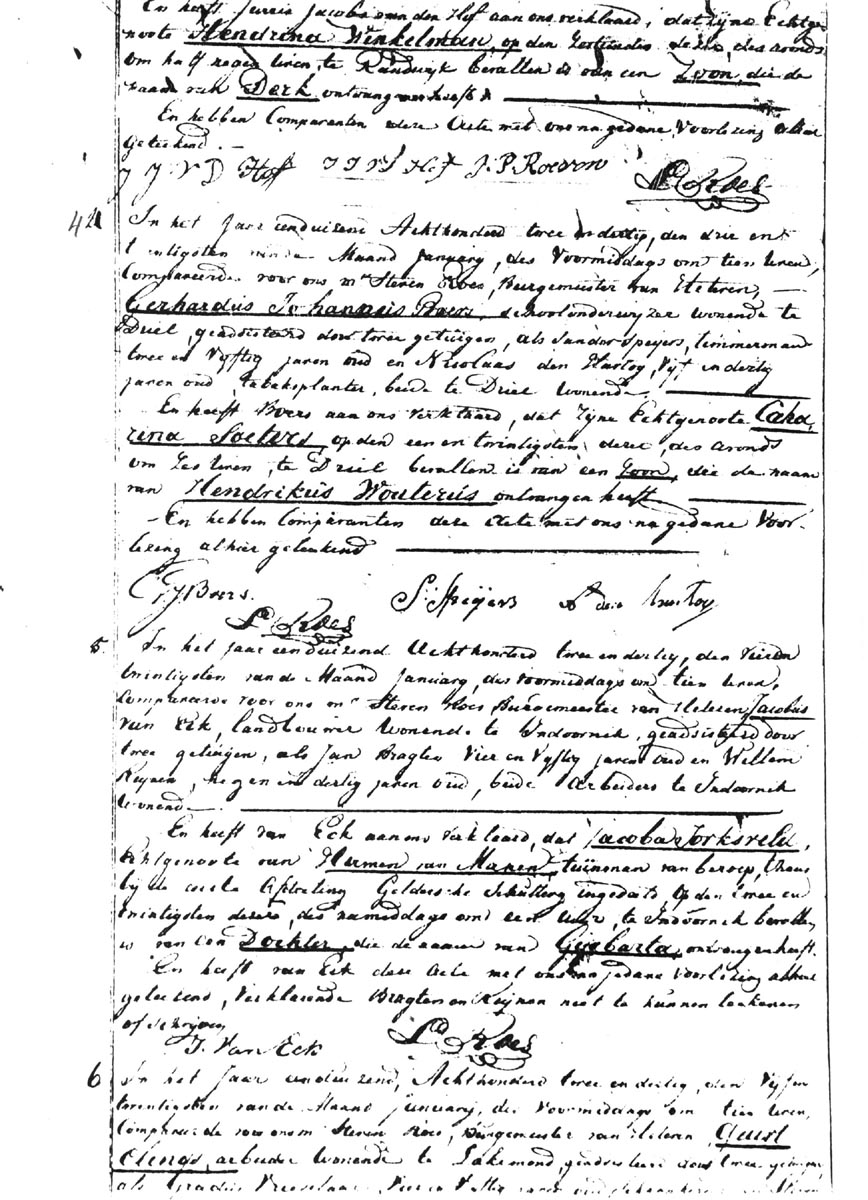 En heeft Jurrie Jacobs van den Hof aan ons verklaard, dat zyne Echtge
noote Hendrina Winkelman, op den dezer, des avonds
om half negen uren, te Randwyk bevallen is van een Zoon, die de
naam van Derk ontvangen heeft
En hebben Comparenten deze Acte met ons na gedane Voorlezing alhier
geteekend. —
J J V D Hof J J V D Hof J. P. Roeven
S Roes
4
In het Jaar eenduizend Achthonderd twee en dertig, den drie en
twintigsten van de Maand January, des Voormiddags om tien uren,
Compareerde voor ons mr Steven Roes, Burgemeester van Heteren, —
Gerhardus Johannes Boers, schoolonderwyzer wonende te
Driel, geadsisteerd door twee getuigen, als Sander Speyers, timmerman
twee en Vyftig jaren oud en Nicolaas den Hartog, Vyf en dertig
jaren oud, tabaksplanter, beide te Driel wonende.
En heeft Boers aan ons verklaard, dat Zyne Echtgenoote Catha
rina Soeters, op den een en twintigsten dezer, des avonds
om Zes uren, te Driel bevallen is van een Zoon, die de naam
van Hendrikus Wouterus ontvangen heeft.
— En hebben Comparanten deze Acte met ons na gedane Voor-
lezing alhier geteekend
G J Boers. S. Speijers N den Hartog
S Roes
5.
In het jaar eenduizend Achthonderd twee en dertig, den vieren
twintigsten van de Maand January, des voormiddags om tien uren,
Compareerde voor ons mr Steven Roes Burgemeester van Heteren, Jacobus
van Eck, landbouwer wonende te Indoornik, geadsisteerd door
twee getuigen, als Jan Bragten Vier en Vyftig jaren oud en Willem
Reynen, negen en dertig jaren oud, beide Arbeiders te Indoornik
wonende
En heeft van Eck aan ons verklaard, dat Jacoba Jorksveld,
Echtgenoote van Hermen van Maren, tuinman van beroep, thans
by de eerste Afdeeling Geldersche Schuttery ingedeeld op den twee en
twintigsten dezer, des namiddags om een uur, te Indoornik bevallen
is van een Dochter, die de naam van Gysberta, ontvangen heeft.
En heeft van Eck deze Acte met ons na gedane voorlezing alhier
geteekend, Verklarende Bragten en Reijnen niet te kunnen teekenen
of schrijven
J. Van Eck S Roes
6
In het Jaar eenduizend, Achthonderd twee en dertig, den Vyf en
twintigsten van de Maand January, des Voormiddags om tien uren,
Compareerde voor ons mr Steven Roes, Burgemeester van Heteren,
arbeider wonende te Lakemond, geadsisteerd door twee getuigen
als Gradus Vier en Vyftig jaren oud